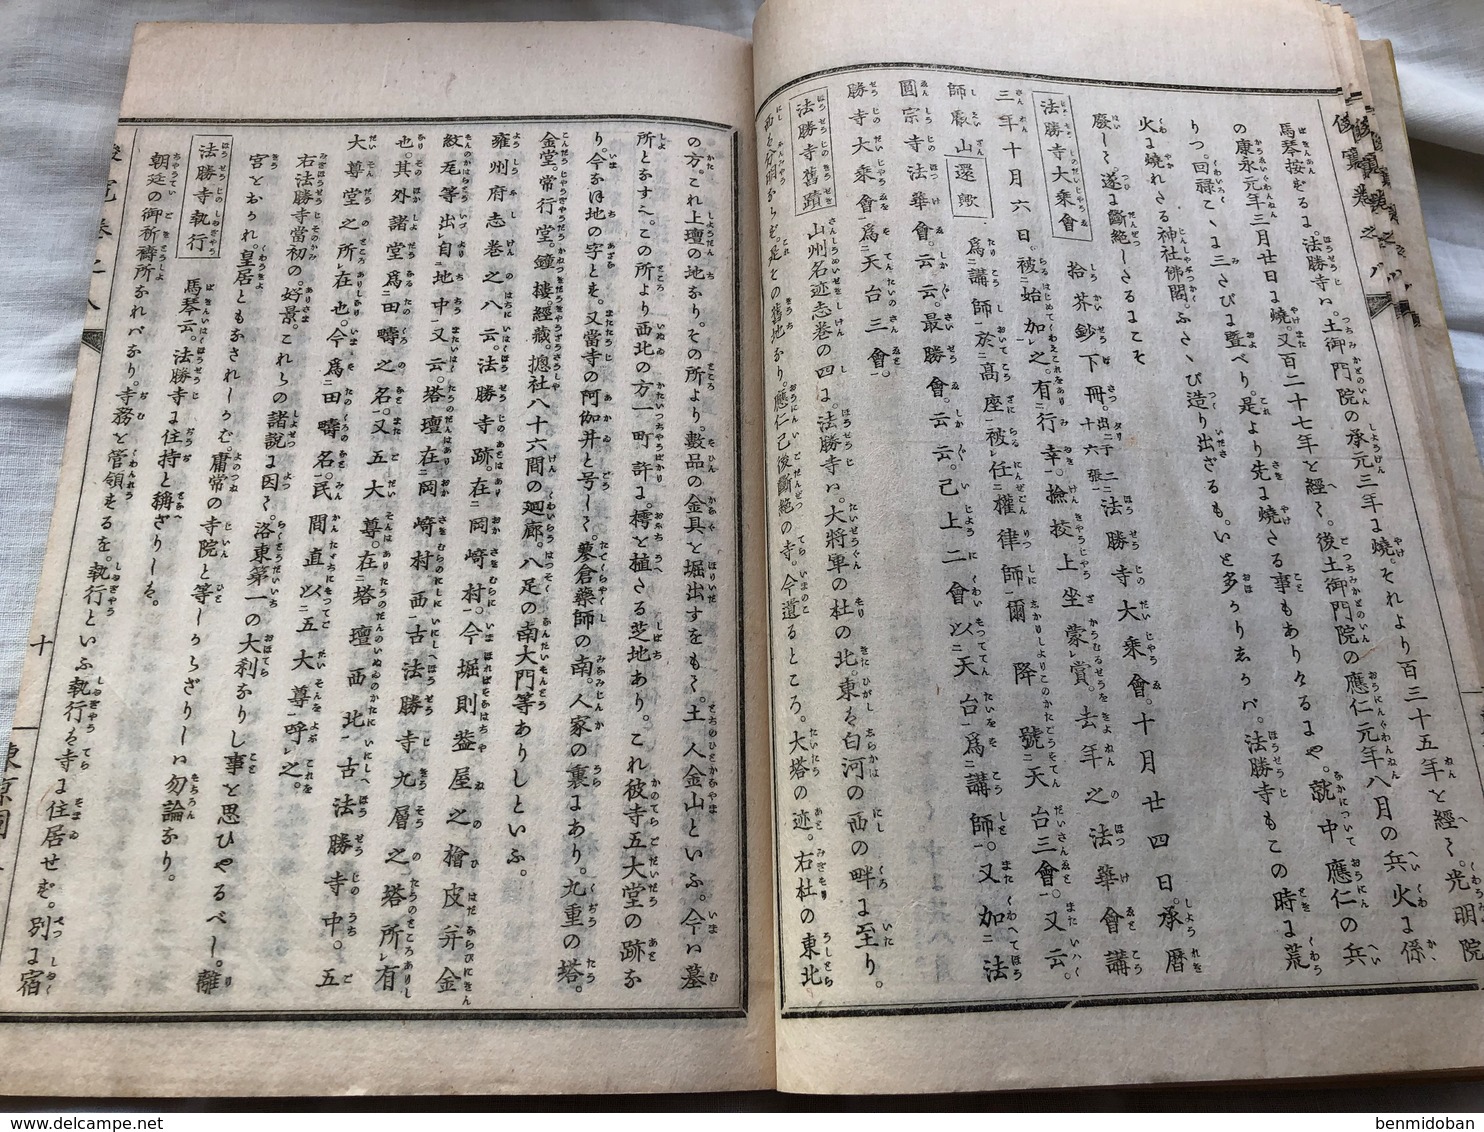 馬琴按ずるに。法勝寺ハ。土御門院の承元三年に燒。それより百三十五年を經て。光明院
の康永元年三月廿日に燒。又百二十七年を經て。後土御門院の應仁元年八月の兵火に係
りつ。回禄こゝに三たびに曁べり。是より先に燒たる事もありけるにや。就中應仁の兵
火に燒れたる神社佛閣。ふたゝび造り出ざるも。いと多かりゑかバ。法勝寺もこの時に荒
廢して遂に斷絶したるにこそ
法勝寺大乘會 拾芥鈔下冊十六張 法勝寺大乘會。十月廿四日。承暦
三年十月六日。被始加之。有行幸。撿挍上坐蒙賞。去年之法華會講
師嚴山還歟 爲講師於高座被任權律師爾降號天台三會。又云。
圓宗寺法華會。云云。最勝會。云云。已上二會以天台爲講師。又加法
勝寺大乘會爲天台三會。
法勝寺舊蹟 山州名迹志巻の四に。法勝寺ハ。大將軍の杜の北。東を白河の西の畔に至り。
西を分明ならず。是その舊地なり。應仁已後斷絶の寺。今遺るところ。大塔の迹。右杜の東北
の方。これ上壇の地なり。その所より。數品の金具を堀出すをもて。土人金山といふ。今ハ墓
所となすべ。この所より西北の方一町許に。樗を植たる芝地あり。これ彼寺五大堂の跡な
り。今なほ地の字とす。又當寺の阿伽井と号して。蓼倉藥師の南。人家の裏にあり。九重の塔。
金堂。常行堂。鐘樓。經藏。摠社八十六間の廻廊。八足の南大門等ありしといふ。
雍州府志巻之八云。法勝寺跡。在岡崎村。今堀則葢屋之檜皮并金
紋瓦等出自地中又云。塔壇在岡崎村西古法勝寺九層之塔所有
也。其外諸堂爲田疇之名。又五大尊。在塔壇西北古法勝寺中。五
大尊堂之所在也。今爲田疇名。民間直以五大尊呼之。
右法勝寺當初の。好景。これらの諸說に因て。洛東第一の大刹なりし事を思ひやるべし。離
宮とおかれ。皇居ともなされしかむ。庸常の寺院と等しからざりしハ勿論なり。
法勝寺執行 馬琴云。法勝寺に住持と稱ざりしを。
朝廷の御祈禱所なれバなり。寺務を管領するを。執行といふ執行ハ寺に住居せず。別に宿
十